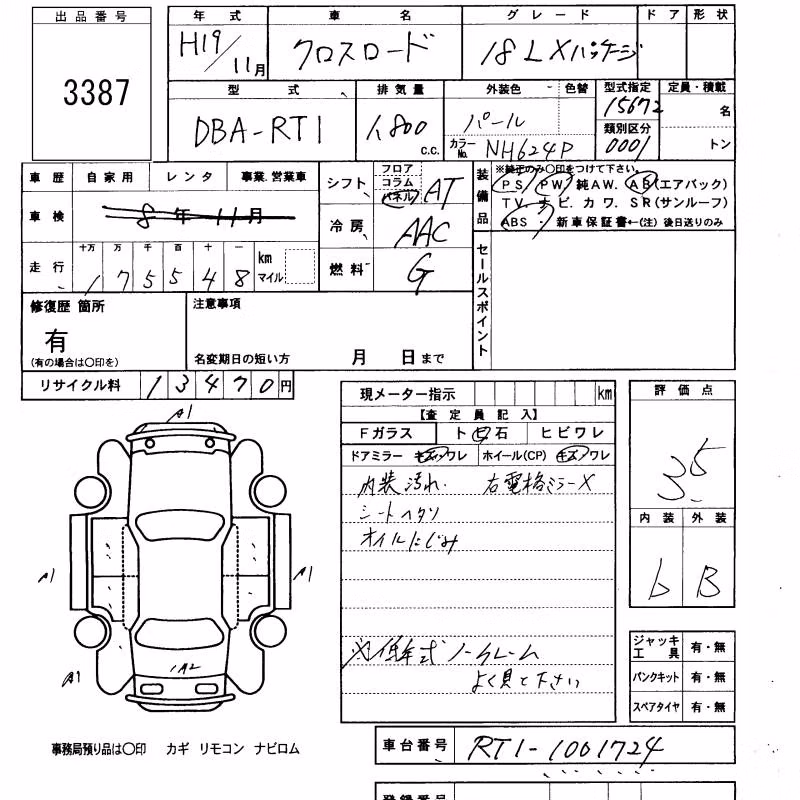 出品番号
3387
年式 車名 グレード ドア 形状
H19/11月 クロスロード 18L Xパッケージ
型式 排気量 外装色 色替 型式指定 定員・積載
DBA-RT1 1,800 c.c. パール 15672 名
カラーNo. NH624P 類別区分 0001 トン
車歴 自家用 レンタ 事業.営業車
車検 8年11月
走行 十万 万 千 百 十 一
175548 km マイル
シフト フロア コラム パネル AT
冷房 AAC
燃料 G
装備品 ※純正のみ〇印をつけて下さい。
PS PW 純AW. AB(エアバック)
TV. ナビ. カワ. SR(サンルーフ)
ABS ・ 新車保証書←(注) 後日送りのみ
セールスポイント
修復歴 箇所
有
(有の場合は〇印を)
注意事項
名変期日の短い方 月 日まで
リサイクル料 13470円
現メーター指示 km
【査定員記入】
Fガラス トビ石 ヒビワレ
ドアミラー キズ/ワレ ホイール(CP) キズ/ワレ
内装汚れ. 右電格ミラーX
シートヘタリ
オイルにじみ
※低年式ノークレーム
よく見て下さい
評価点
3.5
内装 外装
b B
ジャッキ工具 有・無
パンクキット 有・無
スペアタイヤ 有・無
A1
A1
A1
A1
1A2
事務局預り品は〇印 カギ リモコン ナビロム
車台番号 RT1-1001724
登録番号